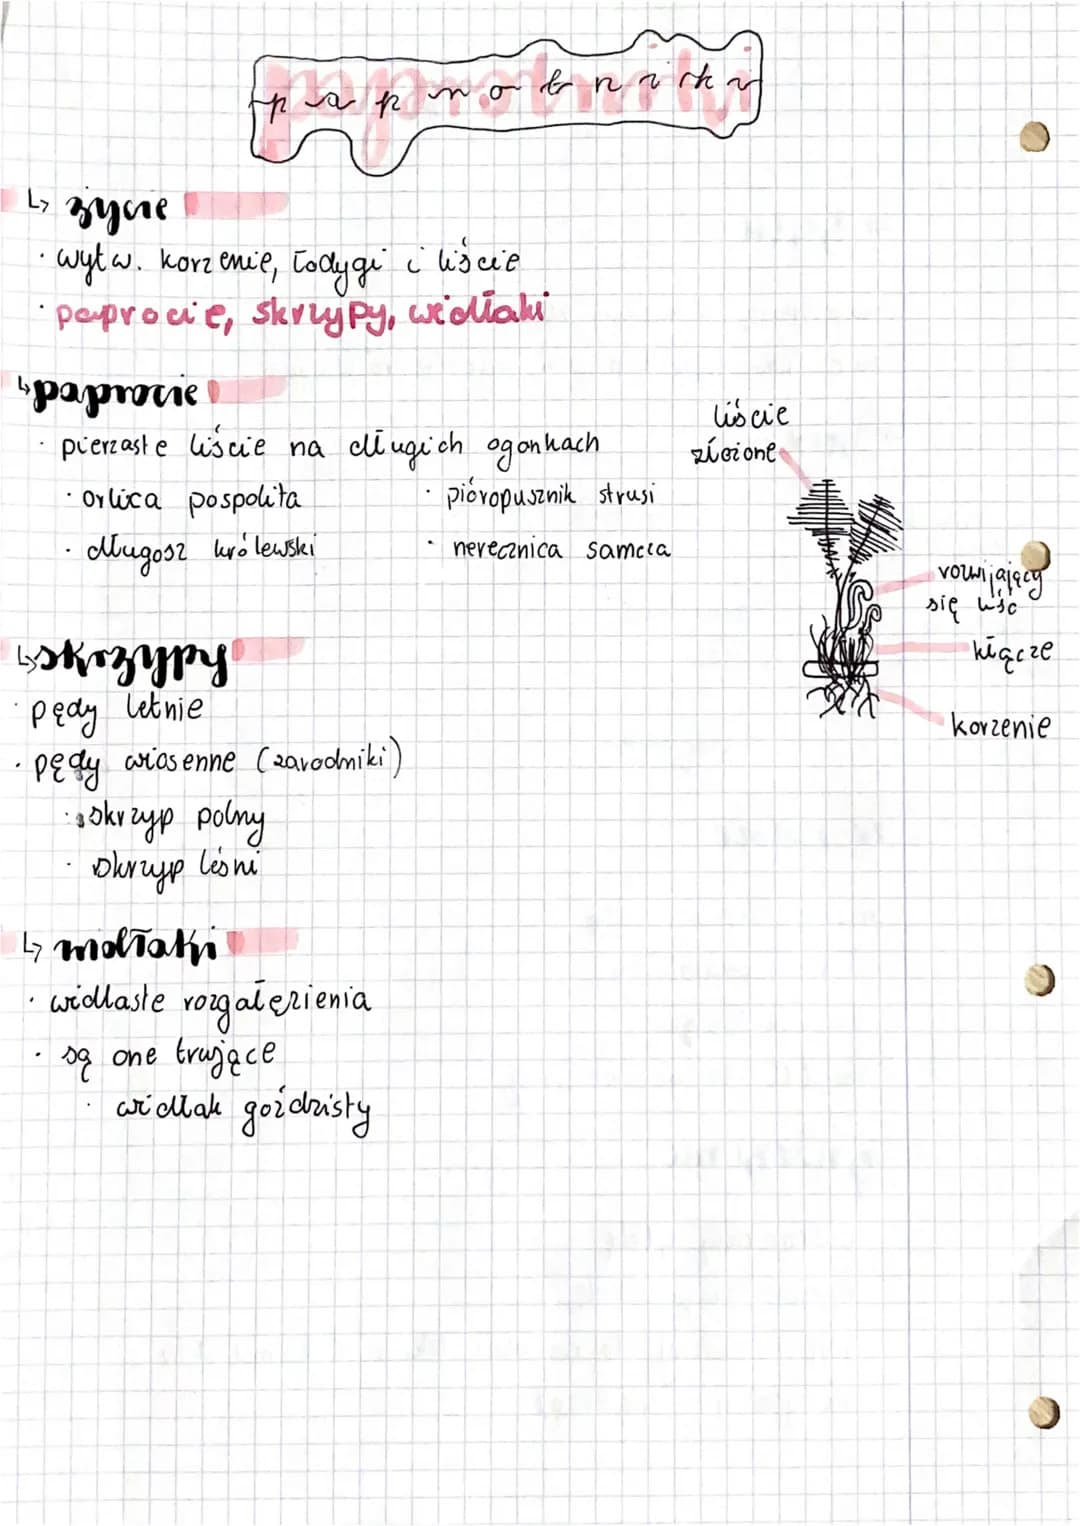 paprotniki
↳ życie
· wytw. korzenie, łodygi i liście
· paprocie, skrzypy, widłaki
↳ paprocie
· pierzaste liście na długich ogonkach
· orlica pospolita
· długosz królewski
· pióropusznik strusi
· nerecznica samcza
liście
złożone
rozwijający
się liść
kłącze
korzenie
↳ skrzypy
· pędy letnie
· pędy wiosenne (zarodniki)
· skrzyp polny
· skrzyp leśni
↳ widłaki
· widlaste rozgałęzienia
· są one trujące
· widłak goździsty